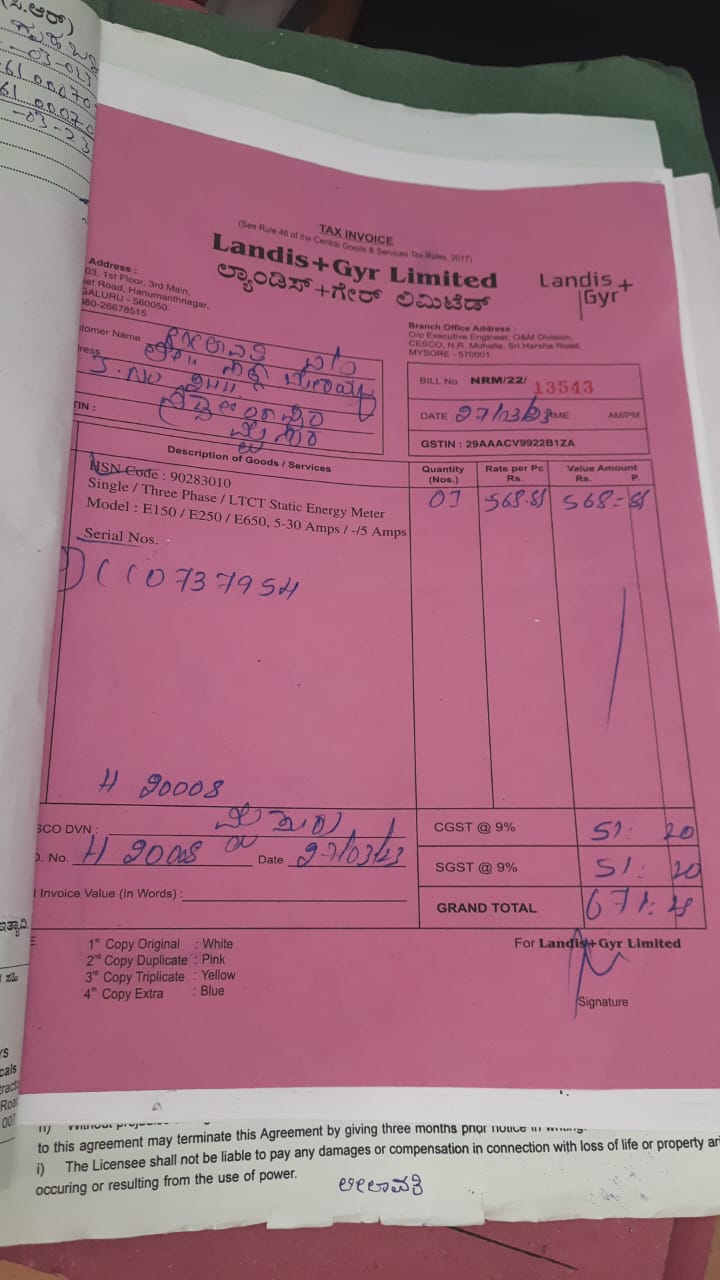 (ಸಿ.ಆರ್)
-03-023
61.00070
61.00070
-03-23
TAX INVOICE
(See Rule 46 of the Central Goods & Services Tax Rules, 2017)
Landis+Gyr Limited
ಲ್ಯಾಂಡಿಸ್+ಗೇರ್ ಲಿಮಿಟೆಡ್
Landis+
Gyr
Address :
03, 1st Floor, 3rd Main,
et Road, Hanumanthnagar,
GALURU - 560050.
080-26678515
Branch Office Address :
O/o Executive Engineer, O&M Division,
CESCO, N.R. Mohalla, Sri Harsha Road,
MYSORE - 570001.
tomer Name ಲೀಲಾವತಿ w/o
ress
S.No
TIN :
ಮೈಸೂರು
BILL No. NRM/22/ 13543
DATE 27/03/23 TIME AM/PM
GSTIN : 29AAACV9922B1ZA
Description of Goods / Services
Quantity (Nos.) Rate per Pc Rs. Value Amount Rs. P.
HSN Code : 90283010
Single / Three Phase / LTCT Static Energy Meter
Model : E150 / E250 / E650, 5-30 Amps / -/5 Amps
01 568.81 568=81
Serial Nos.
1) CC0737954
H 20008
SCO DVN : ಮೈಸೂರು
. No. H 20008 Date 27/03/23
Invoice Value (In Words) :
CGST @ 9% 51: 20
SGST @ 9% 51: 20
GRAND TOTAL 671:21
1st Copy Original : White
2nd Copy Duplicate : Pink
3rd Copy Triplicate : Yellow
4th Copy Extra : Blue
For Landis+Gyr Limited
Signature
to this agreement may terminate this Agreement by giving three months prior notice in writing.
i) The Licensee shall not be liable to pay any damages or compensation in connection with loss of life or property
occuring or resulting from the use of power.
ಲೀಲಾವತಿ